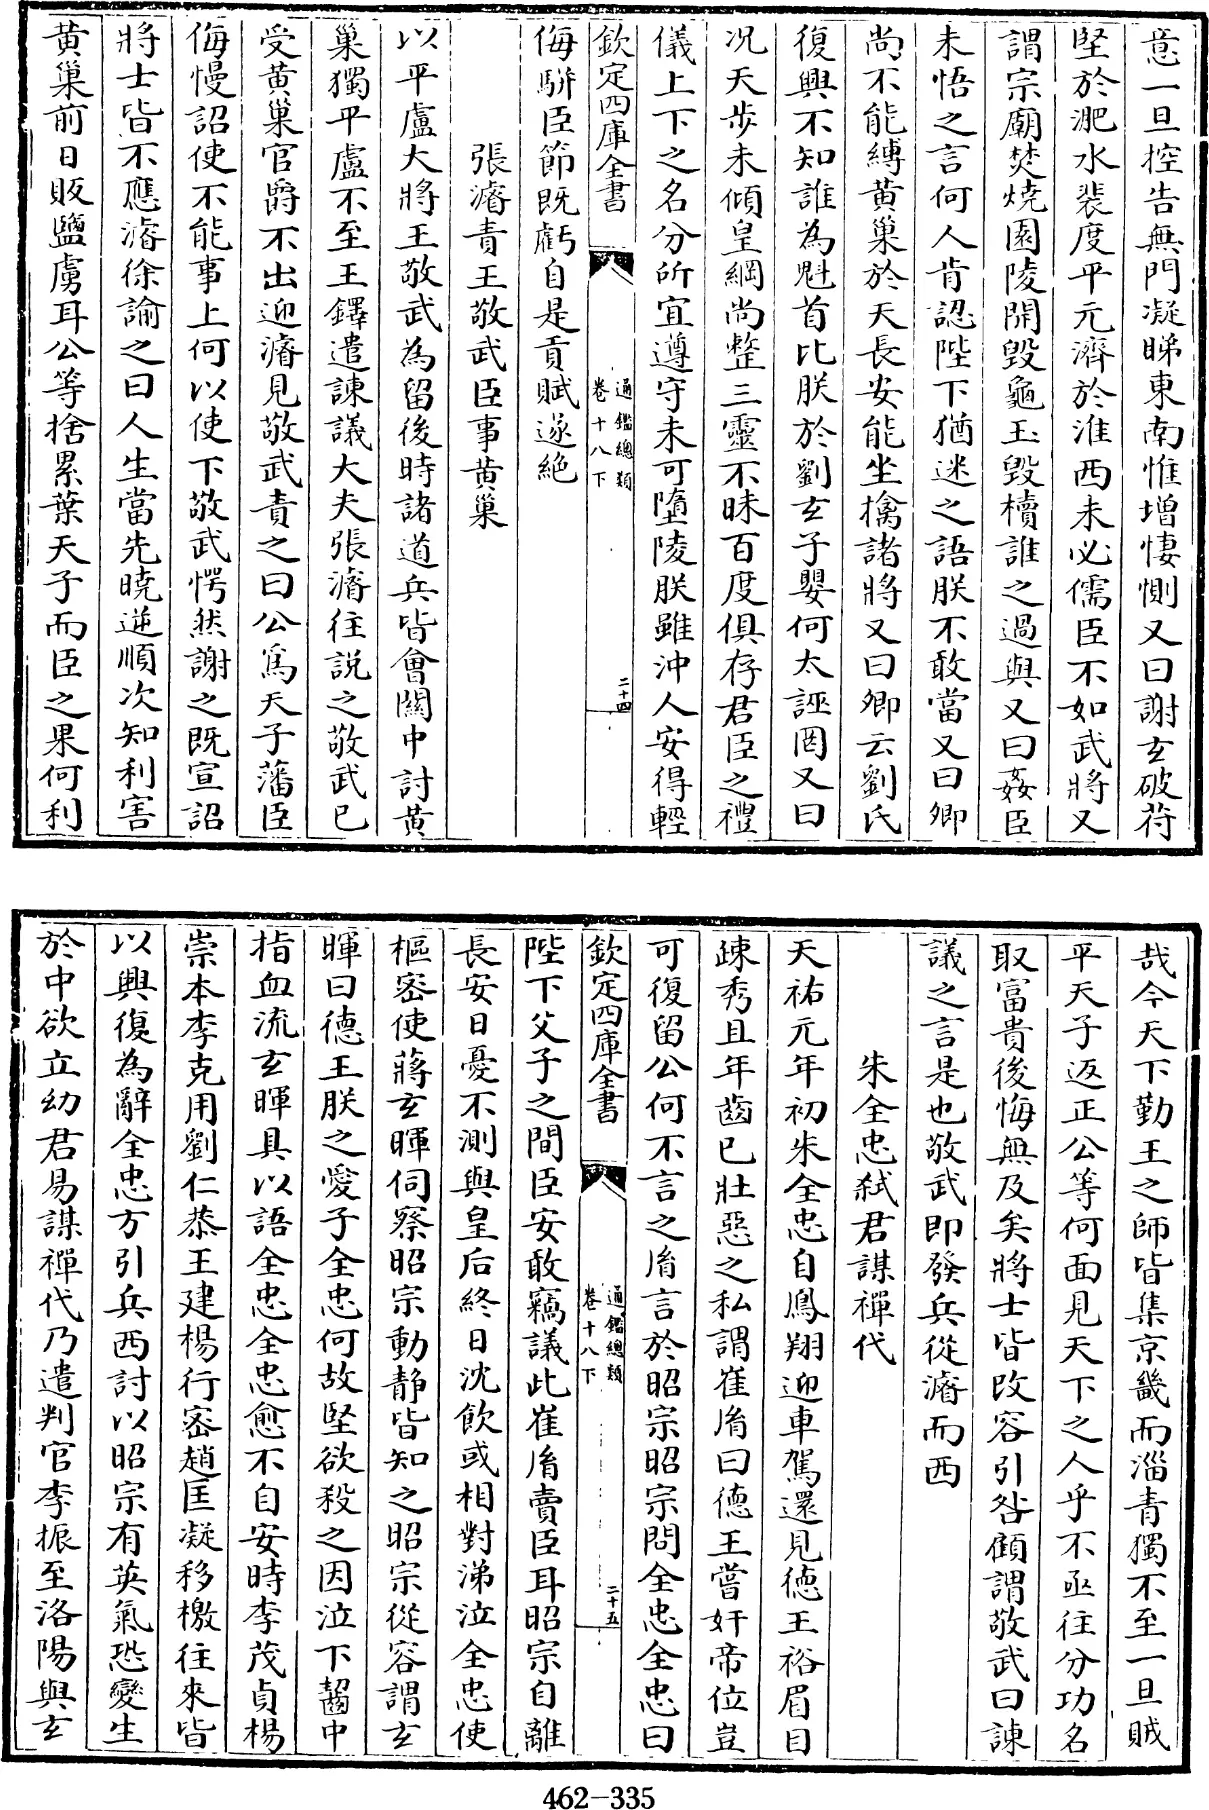 意一旦控告無門凝睇東南惟增悽惻又曰謝玄破苻
堅於淝水裴度平元濟於淮西未必儒臣不如武將又
謂宗廟焚燒園陵開毀龜玉毀櫝誰之過與又曰姦臣
未悟之言何人肯認陛下猶迷之語朕不敢當又曰卿
尚不能縛黃巢於天長安能坐擒諸將又曰卿云劉氏
復興不知誰為魁首比朕於劉玄子嬰何太誣罔又曰
况天步未傾皇綱尚整三靈不昧百度俱存君臣之禮
儀上下之名分所宜遵守未可墮陵朕雖沖人安得輕
欽定四庫全書
通鑑總類
卷十八下
二十四
侮騈臣節既虧自是貢賦遂絶
張濬責王敬武臣事黄巢
以平盧大將王敬武為留後時諸道兵皆會關中討黄
巢獨平盧不至王鐸遣諫議大夫張濬往説之敬武已
受黄巢官爵不出迎濬見敬武責之曰公爲天子藩臣
侮慢詔使不能事上何以使下敬武愕然謝之既宣詔
將士皆不應濬徐諭之曰人生當先曉逆順次知利害
黄巢前日販鹽虜耳公等捨累葉天子而臣之果何利
哉今天下勤王之師皆集京畿而淄青獨不至一旦賊
平天子返正公等何面見天下之人乎不亟往分功名
取富貴後悔無及矣將士皆改容引咎顧謂敬武曰諫
議之言是也敬武即發兵從濬而西
朱全忠弑君謀禪代
天祐元年初朱全忠自鳳翔迎車駕還見德王裕眉目
疎秀且年齒已壯惡之私謂崔胤曰德王嘗奸帝位豈
可復留公何不言之胤言於昭宗昭宗問全忠全忠曰
欽定四庫全書
通鑑總類
卷十八下
二十五
陛下父子之間臣安敢竊議此崔胤賣臣耳昭宗自離
長安日憂不測與皇后終日沈飲或相對涕泣全忠使
樞密使蔣玄暉伺察昭宗動靜皆知之昭宗從容謂玄
暉曰德王朕之愛子全忠何故堅欲殺之因泣下齧中
指血流玄暉具以語全忠全忠愈不自安時李茂貞楊
崇本李克用劉仁恭王建楊行密趙匡凝移檄往來皆
以興復為辭全忠方引兵西討以昭宗有英氣恐變生
於中欲立幼君易謀禪代乃遣判官李振至洛陽與玄
462-335